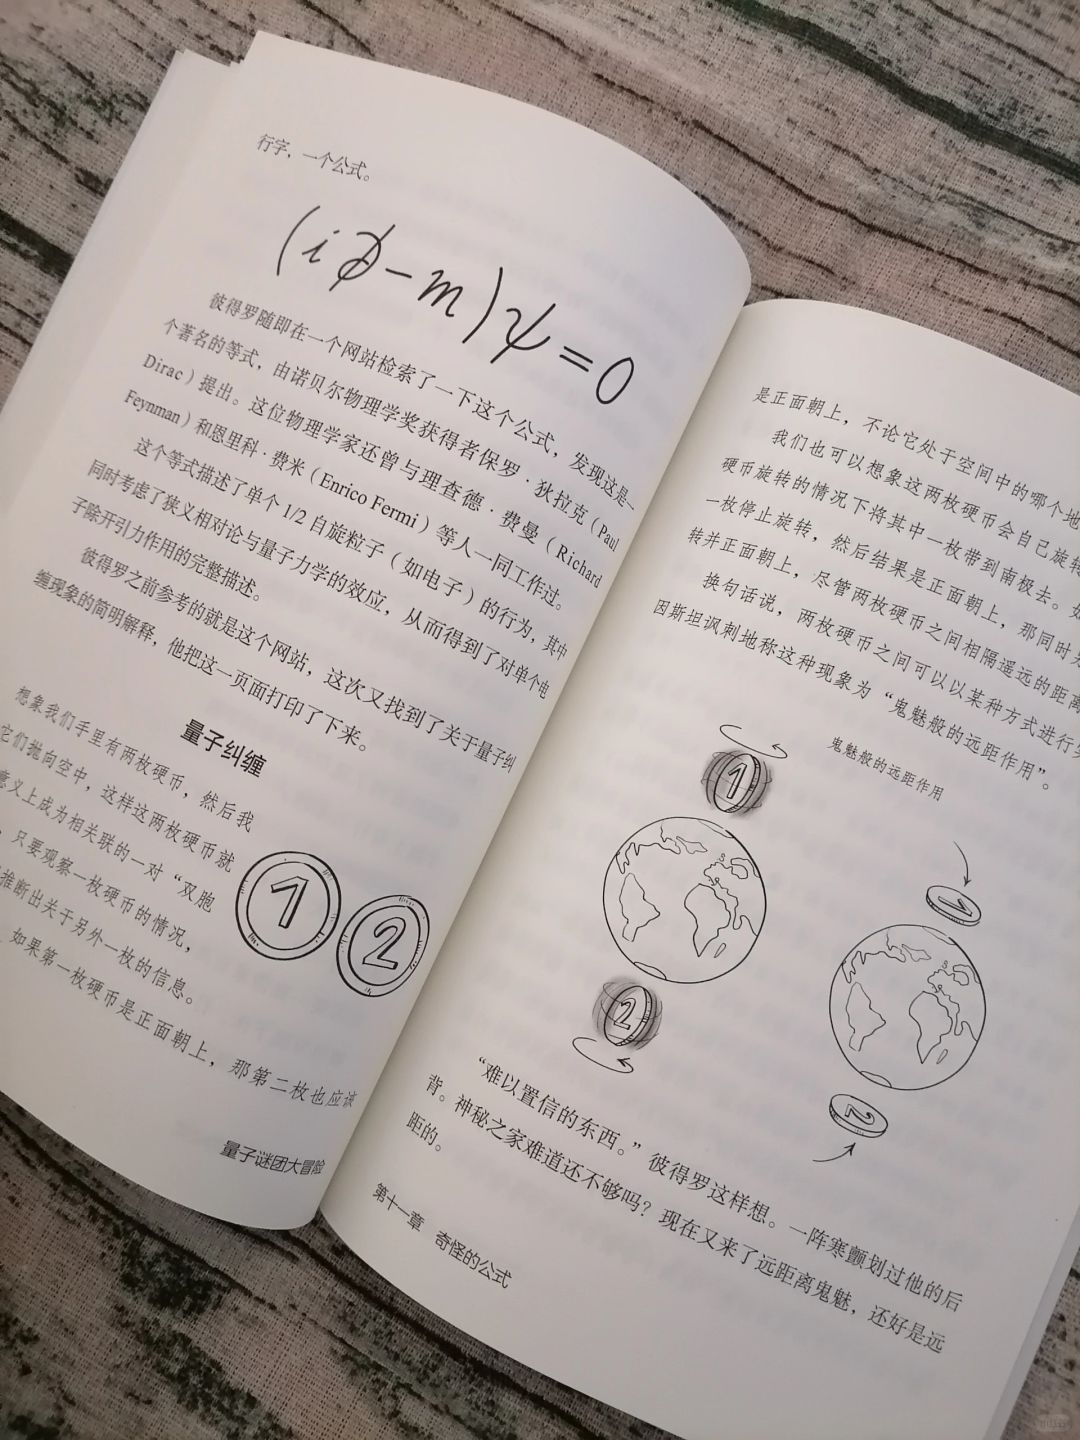 行字，一个公式。
(i∂̸-m)ψ=0
彼得罗随即在一个网站检索了一下这个公式，发现这是一
个著名的等式，由诺贝尔物理学奖获得者保罗·狄拉克（Paul
Dirac）提出。这位物理学家还曾与理查德·费曼（Richard
Feynman）和恩里科·费米（Enrico Fermi）等人一同工作过。
这个等式描述了单个1/2自旋粒子（如电子）的行为，其中
同时考虑了狭义相对论与量子力学的效应，从而得到了对单个电
子除开引力作用的完整描述。
彼得罗之前参考的就是这个网站，这次又找到了关于量子纠
缠现象的简明解释，他把这一页面打印了下来。
量子纠缠
想象我们手里有两枚硬币，然后我
它们抛向空中，这样这两枚硬币就
意义上成为相关联的一对“双胞
，只要观察一枚硬币的情况，
推断出关于另外一枚的信息。
如果第一枚硬币是正面朝上，那第二枚也应该
1
2
量子谜团大冒险
是正面朝上，不论它处于空间中的哪个地
我们也可以想象这两枚硬币会自己旋转
硬币旋转的情况下将其中一枚带到南极去。如
一枚停止旋转，然后结果是正面朝上，那同时另
转并正面朝上，尽管两枚硬币之间相隔遥远的距离
换句话说，两枚硬币之间可以以某种方式进行
因斯坦讽刺地称这种现象为“鬼魅般的远距作用”。
鬼魅般的远距作用
1
1
2
2
“难以置信的东西。”彼得罗这样想。一阵寒颤划过他的后
背。神秘之家难道还不够吗？现在又来了远距离鬼魅，还好是远
距的。
第十一章 奇怪的公式